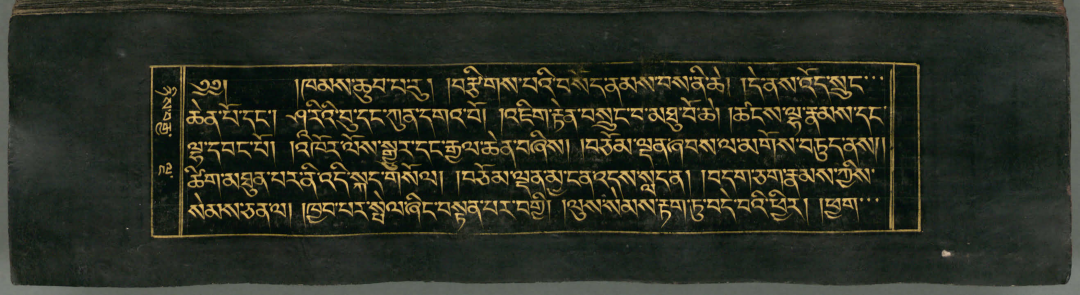 ༄༅། །ཁམས་ཆུབ་པརུ། །བརྩིགས་པའི་བསོདནམས་བས་ནི་ཆེ། །དེནས་འོད་སྲུང་
ཆེན་པོ་དང༌། ཤ་རིའི་བུ་དང་ཀུན་དགའ་བོ། །འཇིག་རྟེན་བསྲུང་བ་མཐུ་བོ་ཆེ། །ཚངས་ལྷ་རྣམས་དང་
ལྷ་དབང་པོ། །འཁོར་ལོས་སྒྱུར་དང་རྒྱལ་ཆེན་བཞིས། །བཅོམ་ལྡནཞབས་ལ་མགོས་བཏུདནས།།
ཚིག་མཐུན་པར་ནི་འདི་སྐད་གསོལ། །བཅོམ་ལྡནམྱངནའདས་སླདན། །བདག་ཅག་རྣམས་ཀྱིས་
སེམས་ཅནལ། །ཁྱབ་པར་སྤེལ་ཞིང་བསྟན་པར་བགྱི། །ལུས་སེམས་རྟག་ཏུ་བདེ་བའི་ཕྱིར། །ཕྱག་